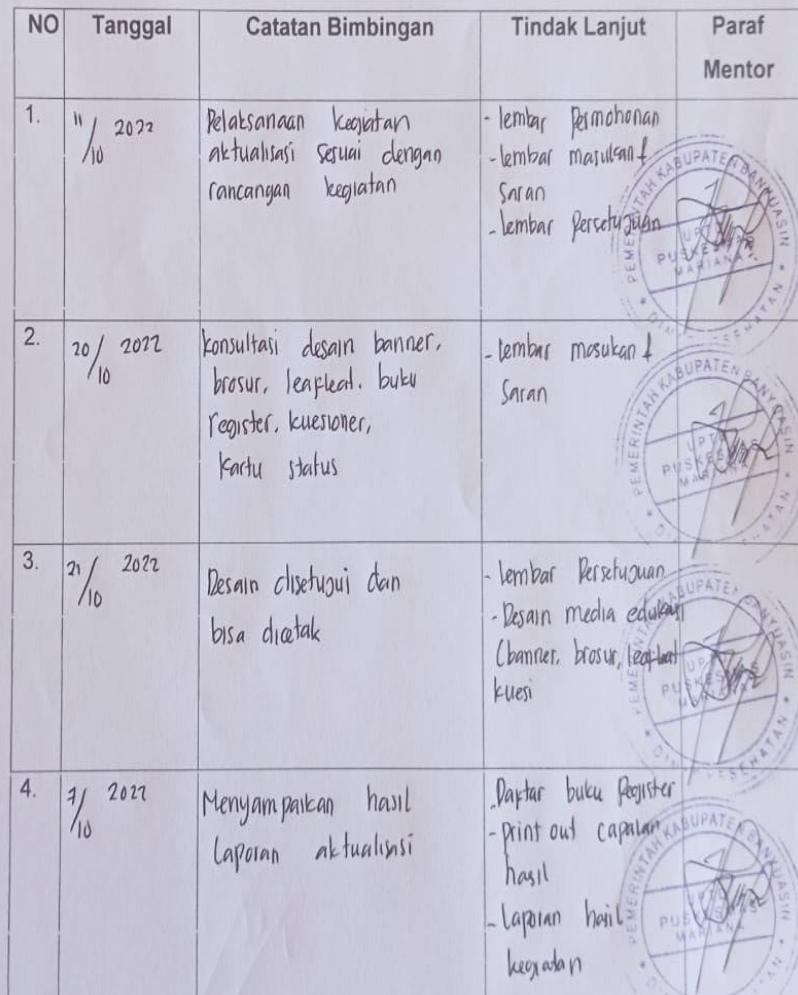 NO Tanggal Catatan Bimbingan Tindak Lanjut Paraf
Mentor
1.
11/10 2022
Pelaksanaan kegiatan
aktualisasi sesuai dengan
rancangan kegiatan
- lembar Permohonan
- lembar masukan &
Saran
- lembar Persetujuan
PEMERINTAH KABUPATEN BANYUASIN
UPTD
PUSKESMAS
MARIANA
DINAS KESEHATAN
2.
20/10 2022
konsultasi desain banner,
brosur, leafleat. buku
register. kuesioner,
kartu status
- lembar masukan &
Saran
PEMERINTAH KABUPATEN BANYUASIN
UPTD
PUSKESMAS
MARIANA
3.
21/10 2022
Desain disetujui dan
bisa dicetak
- lembar Persetujuan
- Desain media edukasi
(banner, brosur, leafleat
kuesi
KABUPATEN BANYUASIN
UPTD
PUSKESMAS
MARIANA
DINAS KESEHATAN
4.
7/10 2022
Menyampaikan hasil
laporan aktualisasi
- Daftar buku Register
- print out capaian
hasil
- laporan hasil
kegiatan
PEMERINTAH KABUPATEN BANYUASIN
UPTD
PUSKESMAS
MARIANA